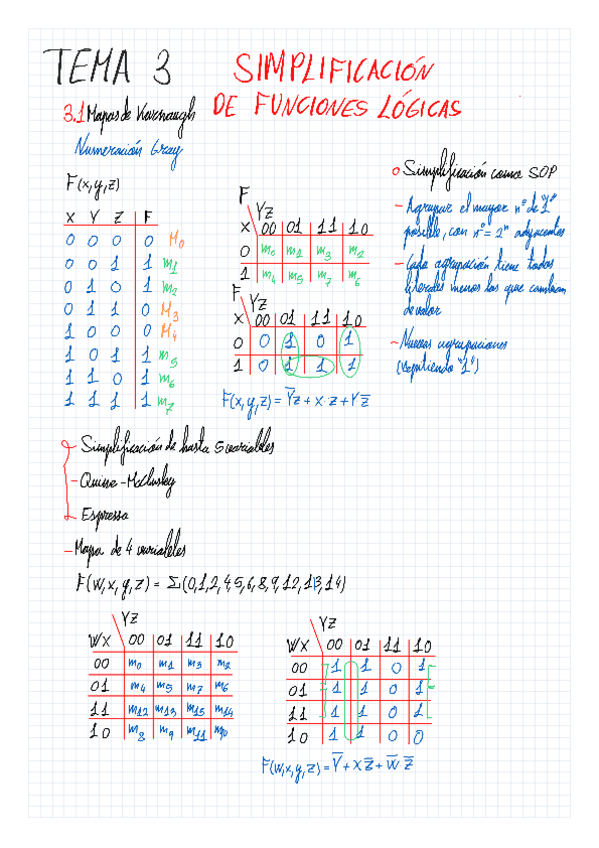 TEMA 3
SIMPLIFICACIÓN
DE FUNCIONES LÓGICAS
3.1 Mapas de Karnaugh
Numeración Gray
F(x,y,z)
X Y Z F
0 0 0 0 M0
0 0 1 1 m1
0 1 0 1 m2
0 1 1 0 M3
1 0 0 0 M4
1 0 1 1 m5
1 1 0 1 m6
1 1 1 1 m7
F
YZ
X 00 01 11 10
0 m0 m1 m3 m2
1 m4 m5 m7 m6
F
YZ
X 00 01 11 10
0 0 1 0 1
1 0 1 1 1
F(x,y,z) = Y̅z + x z + Y z̅
o Simplificación como SOP
- Agrupar el mayor nº de "1"
posible, con nº = 2ⁿ adyacentes
- Cada agrupación tiene todos
literales menos los que cambian
de valor
- Nuevas agrupaciones
(repitiendo "1")
Simplificación de hasta 5 variables
- Quine-McClusky
Espresso
- Mapa de 4 variables
F(w,x,y,z) = Σ(0,1,2,4,5,6,8,9,12,13,14)
YZ
WX 00 01 11 10
00 m0 m1 m3 m2
01 m4 m5 m7 m6
11 m12 m13 m15 m14
10 m8 m9 m11 m10
YZ
WX 00 01 11 10
00 1 1 0 1
01 1 1 0 1
11 1 1 0 1
10 1 1 0 0
F(w,x,y,z) = Y̅ + X Z̅ + W̅ Z̅